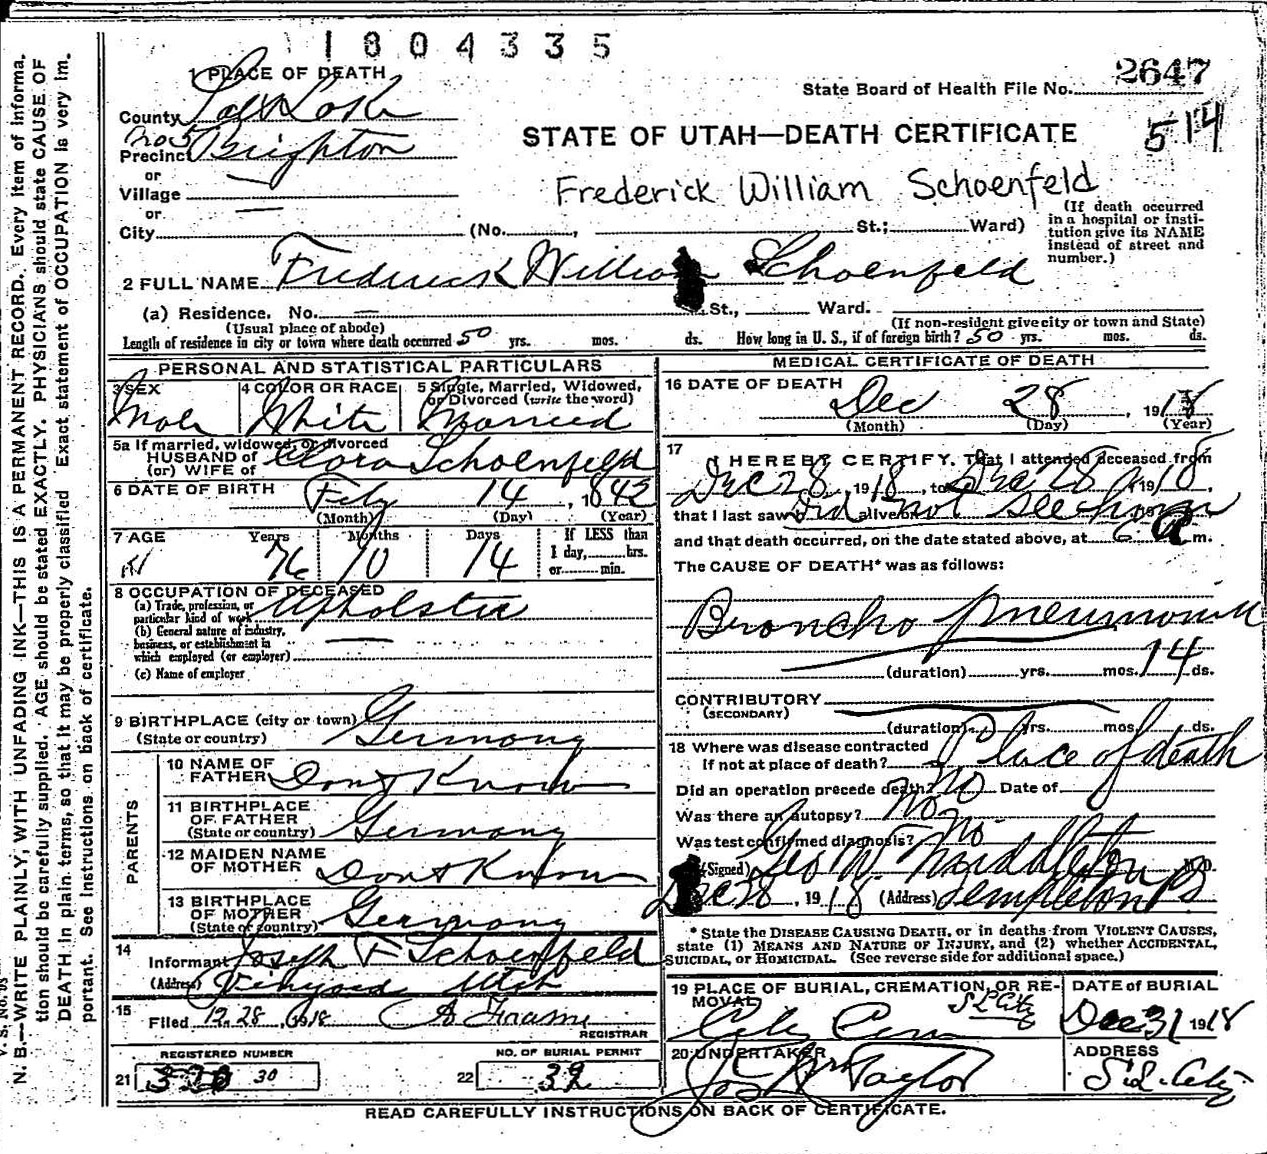 1804335
1 PLACE OF DEATH
2647
State Board of Health File No.
514
County Salt Lake
No 5
Precinct Brighton
STATE OF UTAH—DEATH CERTIFICATE
or
Village
Frederick William Schoenfeld
or
City (No. , St.; Ward)
(If death occurred in a hospital or institution give its NAME instead of street and number.)
2 FULL NAME Frederick William Schoenfeld
(a) Residence. No. — St., Ward.
(Usual place of abode) (If non-resident give city or town and State)
Length of residence in city or town where death occurred 50 yrs. mos. ds. How long in U. S., if of foreign birth? 50 yrs. mos. ds.
PERSONAL AND STATISTICAL PARTICULARS
3 SEX 4 COLOR OR RACE 5 Single, Married, Widowed, or Divorced (write the word)
Male White Married
5a If married, widowed, or divorced
HUSBAND of
(or) WIFE of Clara Schoenfeld
6 DATE OF BIRTH Feb 14, 1842
(Month) (Day) (Year)
7 AGE Years Months Days If LESS than
1 day, hrs.
or min.
76 10 14
8 OCCUPATION OF DECEASED
(a) Trade, profession, or
particular kind of work Upholster
(b) General nature of industry,
business, or establishment in
which employed (or employer)
(c) Name of employer
9 BIRTHPLACE (city or town)
(State or country) Germany
PARENTS
10 NAME OF
FATHER Dont Know
11 BIRTHPLACE
OF FATHER
(State or country) Germany
12 MAIDEN NAME
OF MOTHER Dont Know
13 BIRTHPLACE
OF MOTHER
(State or country) Germany
14
Informant Joseph F Schoenfeld
(Address) Utah
15
Filed 12.28, 1918
REGISTRAR
REGISTERED NUMBER NO. OF BURIAL PERMIT
21 30 22 32
MEDICAL CERTIFICATE OF DEATH
16 DATE OF DEATH
Dec 28, 1918
(Month) (Day) (Year)
17
I HEREBY CERTIFY, That I attended deceased from
Dec 28, 1918, to Dec 28, 1918,
that I last saw h alive on Did not see him
and that death occurred, on the date stated above, at 6 a m.
The CAUSE OF DEATH* was as follows:
Broncho pneumonia
(duration) yrs. mos. 14 ds.
CONTRIBUTORY
(SECONDARY)
(duration) yrs. mos. ds.
18 Where was disease contracted
If not at place of death? Place of death
Did an operation precede death? No Date of
Was there an autopsy? No
Was test confirmed diagnosis? No
(Signed) Geo W. Middleton M.D.
Dec 28, 1918 (Address) Templeton
* State the DISEASE CAUSING DEATH, or in deaths from VIOLENT CAUSES,
state (1) MEANS AND NATURE OF INJURY, and (2) whether ACCIDENTAL,
SUICIDAL, or HOMICIDAL. (See reverse side for additional space.)
19 PLACE OF BURIAL, CREMATION, OR RE-
MOVAL S L City DATE OF BURIAL
City Cem Dec 31 1918
20 UNDERTAKER ADDRESS
Jos Wm Taylor S.L. City
READ CAREFULLY INSTRUCTIONS ON BACK OF CERTIFICATE.
N. B.—WRITE PLAINLY, WITH UNFADING INK—THIS IS A PERMANENT RECORD. Every item of informa-
tion should be carefully supplied. AGE should be stated EXACTLY. PHYSICIANS should state CAUSE OF
DEATH in plain terms, so that it may be properly classified. Exact statement of OCCUPATION is very im-
portant. See instructions on back of certificate.